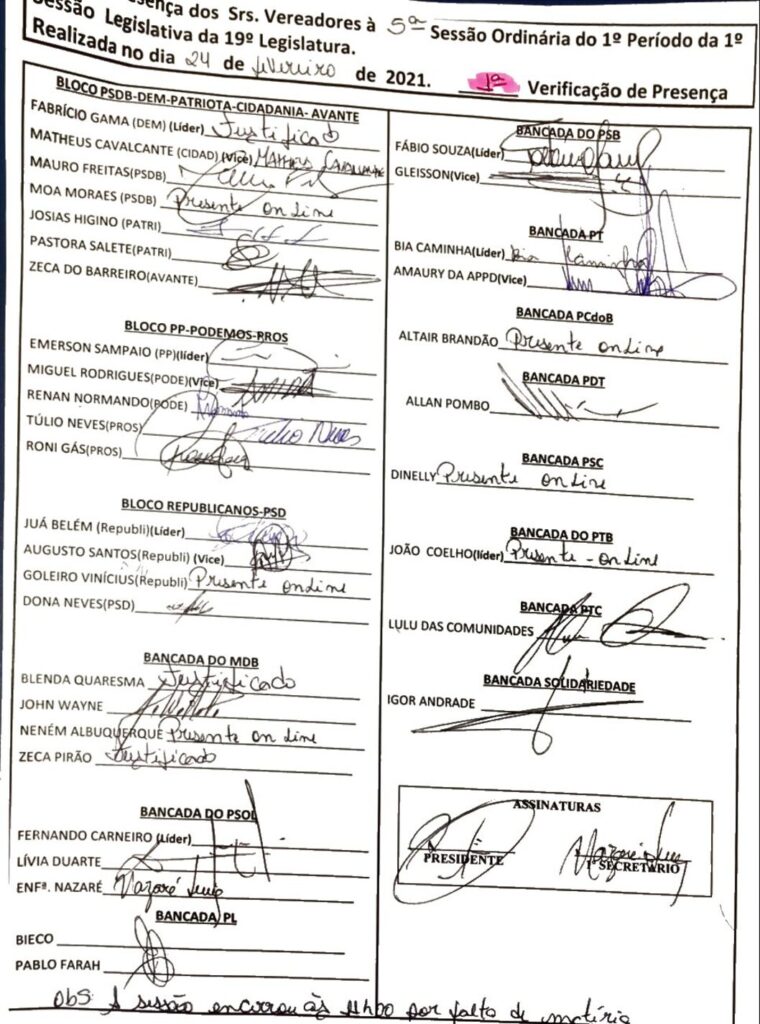 sença dos Srs. Vereadores à 5ª Sessão Ordinária do 1º Período da 1º
Sessão Legislativa da 19º Legislatura.
Realizada no dia 24 de fevereiro de 2021. 1ª Verificação de Presença
BLOCO PSDB-DEM-PATRIOTA-CIDADANIA- AVANTE
FABRÍCIO GAMA (DEM) (Líder) Justificado
MATHEUS CAVALCANTE (CIDAD) (Vice) MATHEUS CAVALCANTE
MAURO FREITAS(PSDB)
MOA MORAES (PSDB) Presente online
JOSIAS HIGINO (PATRI)
PASTORA SALETE(PATRI)
ZECA DO BARREIRO(AVANTE)
BLOCO PP-PODEMOS-PROS
EMERSON SAMPAIO (PP)(líder)
MIGUEL RODRIGUES(PODE)(Vice)
RENAN NORMANDO(PODE)
TÚLIO NEVES(PROS) Túlio Neves
RONI GÁS(PROS)
BLOCO REPUBLICANOS-PSD
JUÁ BELÉM (Republi)(Líder)
AUGUSTO SANTOS(Republi) (Vice)
GOLEIRO VINÍCIUS(Republi) Presente online
DONA NEVES(PSD)
BANCADA DO MDB
BLENDA QUARESMA Justificado
JOHN WAYNE
NENÉM ALBUQUERQUE Presente on line
ZECA PIRÃO Justificado
BANCADA DO PSOL
FERNANDO CARNEIRO (Líder)
LÍVIA DUARTE
ENFª. NAZARÉ Nazaré Lima
BANCADA PL
BIECO
PABLO FARAH
BANCADA DO PSB
FÁBIO SOUZA(Líder)
GLEISSON(Vice)
BANCADA PT
BIA CAMINHA(Líder) Bia Caminha
AMAURY DA APPD(Vice)
BANCADA PCdoB
ALTAIR BRANDÃO Presente online
BANCADA PDT
ALLAN POMBO
BANCADA PSC
DINELLY Presente online
BANCADA DO PTB
JOÃO COELHO(líder) Presente - online
BANCADA PTC
LULU DAS COMUNIDADES
BANCADA SOLIDARIEDADE
IGOR ANDRADE
ASSINATURAS
PRESIDENTE
Nazaré Lima
1º SECRETÁRIO
Obs A sessão encerrou às 11h00 por falta de matéria